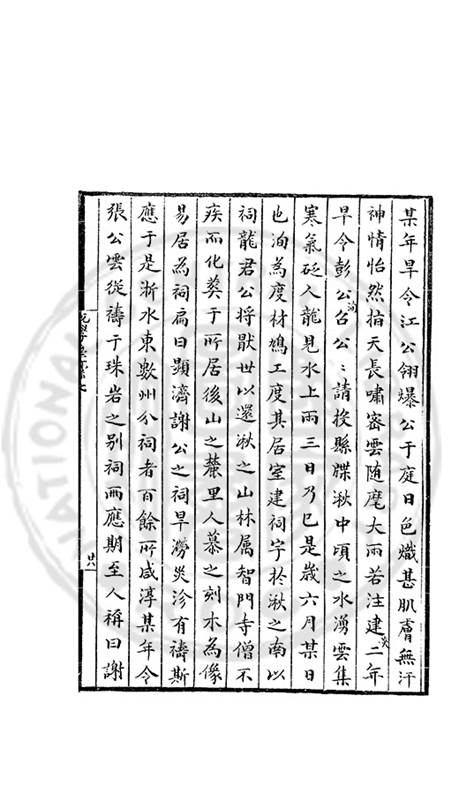 某年旱令江公翎爆公于庭日色熾甚肌膚無汗
神情怡然指天長嘯密雲随麾大雨若注建炎二年
旱令彭公洵召公〻請投縣牒湫中頃之水湧雲集
寒氣砭人龍見水上雨三日乃已是歲六月某日
也洵為度材鳩工度其居室建祠字於湫之南以
祠龍君公将厭世以還湫之山林属智門寺僧不
疾而化葬于所居後山之麓里人慕之刻木為像
易居為祠扁曰顯濟謝公之祠旱澇災沴有禱斯
應于是淅水東數州分祠者百餘所咸淳某年令
張公雲從禱于珠岩之别祠而應期至人稱曰謝
廿八
NATIONAL